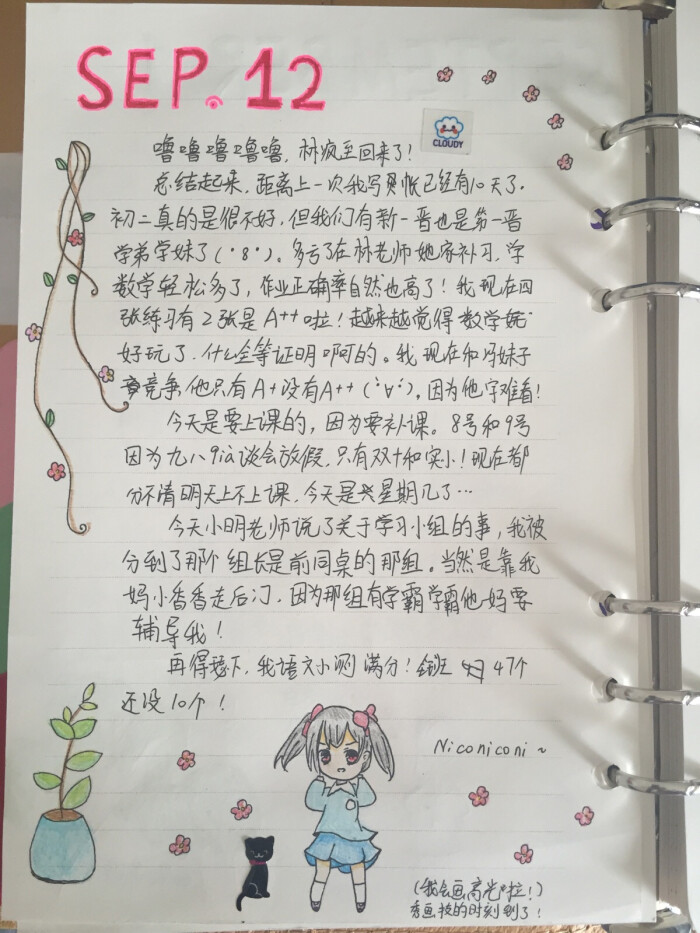 SEP. 12
CLOUDY
噜噜噜噜噜，林疯至回来了！
总结起来，距离上一次我写账已经有10天了。
初二真的是很不好，但我们有新一晋也是第一晋
学弟学妹了(·8·)。多亏了在林老师她家补习，学
数学轻松多了，作业正确率自然也高了！我现在四
张练习有2张是A++啦！越来越觉得数学好
好玩了，什么全等证明啊的。我现在和冯妹子
竞争，他只有A+没有A++(·∀·)，因为他字难看！
今天是要上课的，因为要补课。8号和9号
因为九八9洽谈会放假，只有双十和实小！现在都
分不清明天上不上课，今天是星期几了…
今天小明老师说了关于学习小组的事，我被
分到了那个组长是前同桌的那组。当然是靠我
妈小香香走后门，因为那组有学霸学霸他妈要
辅导我！
再得瑟下，我语文小测满分！全班47个
还没10个！
Niconiconi~
(我会画高光啦！)
秀画技的时刻到了！